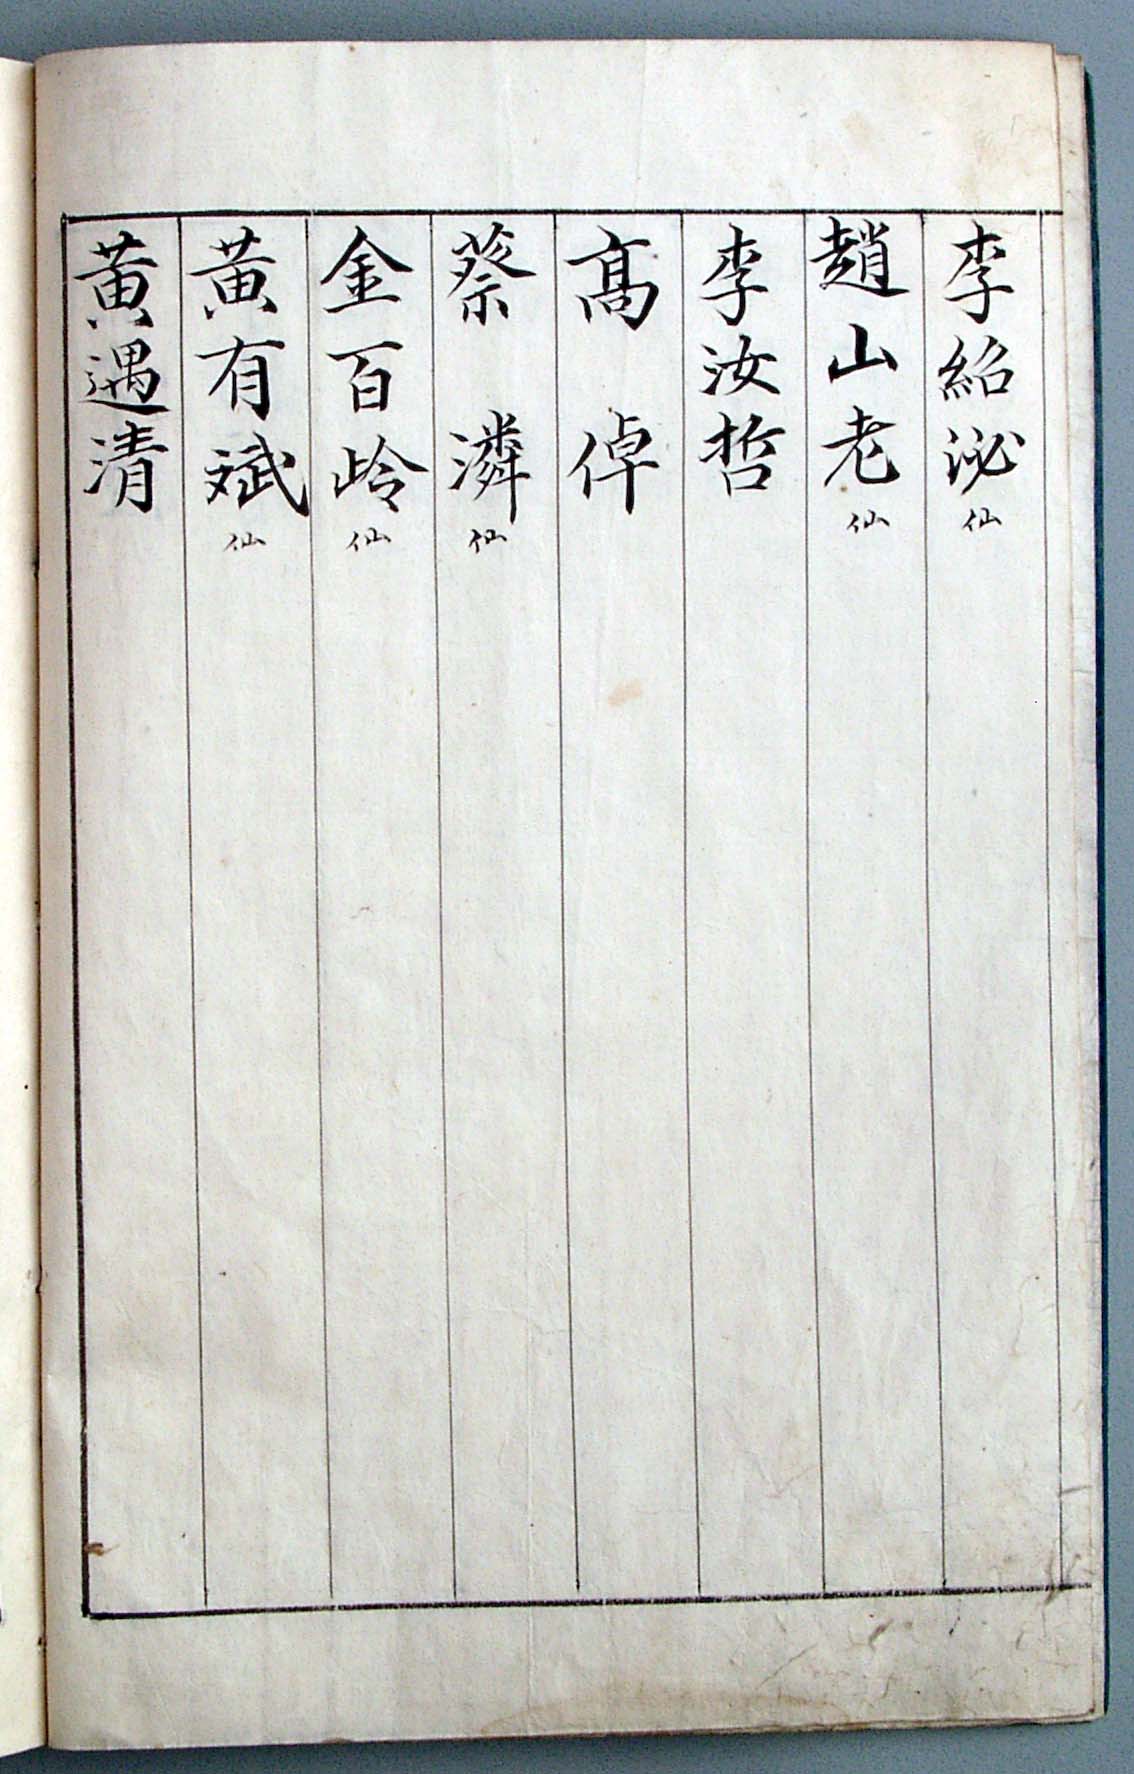 李紹泌仙
趙山老仙
李汝哲
髙倬
蔡潾仙
金百岭仙
黄有斌仙
黄遇清